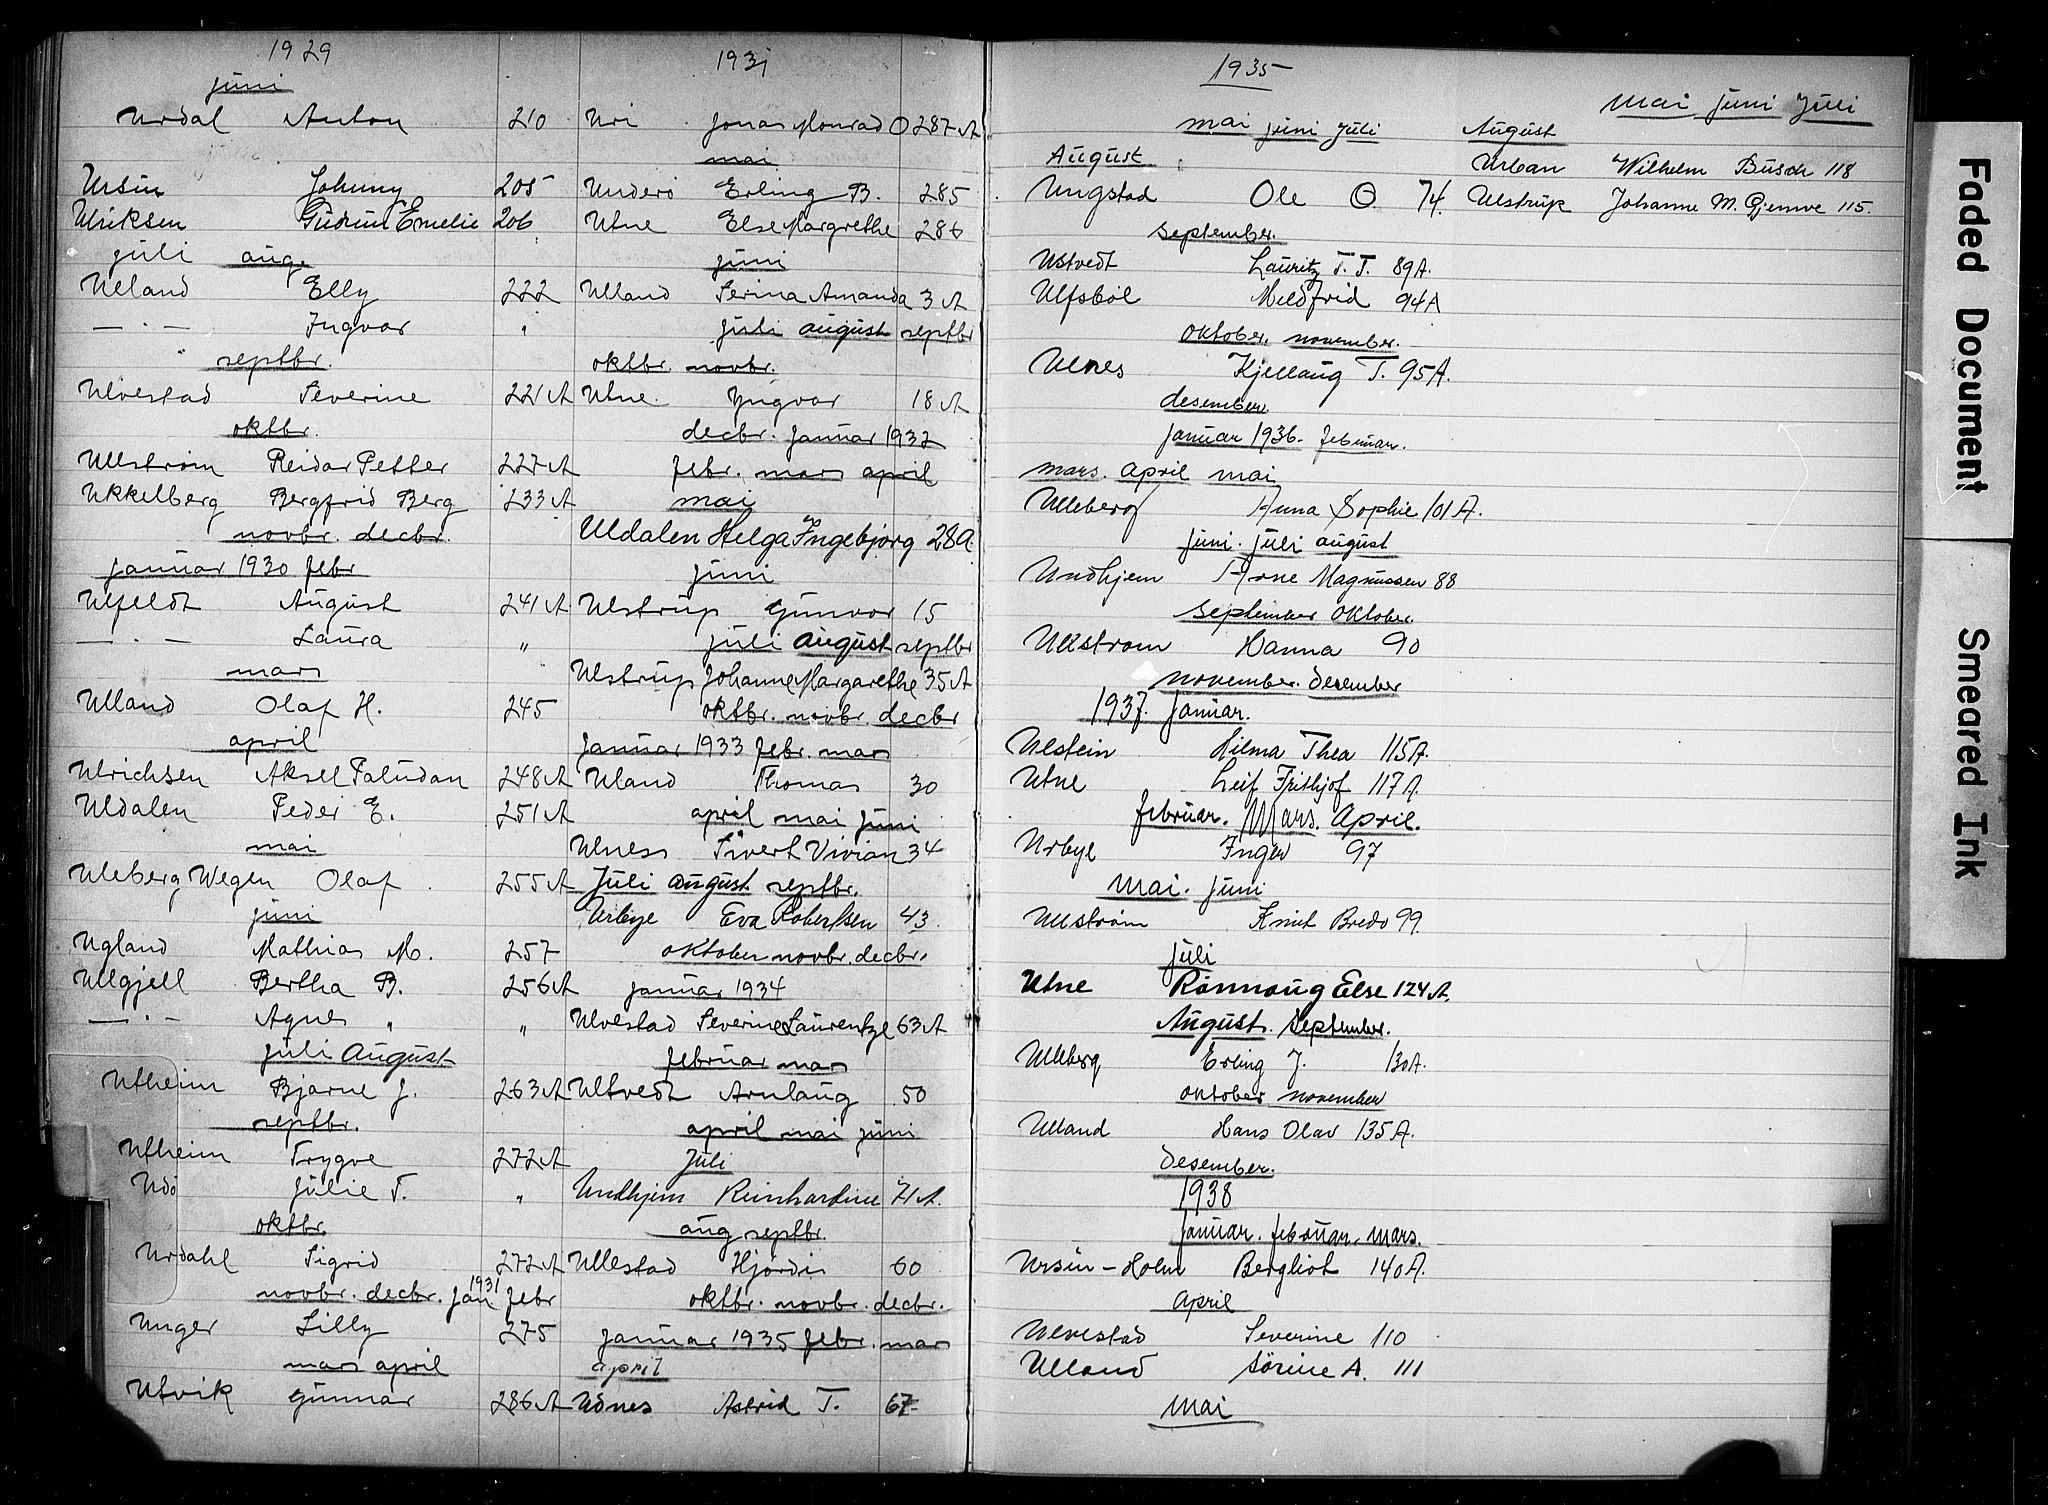 1929
juni
Urdal Anton 210
Ursin Johnny 205
Ulriksen Gudrun Emelie 206
juli aug.
Ueland Elly 222
— · — Ingvar "
septbr.
Ulvestad Severine 221 A
oktbr.
Ullstrøm Reidar Petter 227 A
Ukkelberg Bergfrid Berg 233 A
novbr. decbr.
januar 1930 febr
Ulfeldt August 241 A
— · — Laura "
mars
Ulland Olaf H. 245
april
Ulrichsen Aksel Paludan 248 A
Uldalen Peder E. 251 A
mai
Uleberg Wegen Olaf 255 A
juni
Ugland Mathias M. 257
Ulgjell Bertha B. 256 A
— · — Agnes " "
juli August
Utheim Bjarne J. 263 A
septbr.
Utheim Trygve 272 A
Udø Julie T. "
oktbr.
Urdahl Sigrid 272 A
novbr. decbr. jan 1931 febr
Unger Lilly 275
mars april
Utvik Gunnar 286 A
1931
Uri Jonas Monrad O 287 A
mai
Underø Erling B. 285
Utne Else Margrethe 286
juni
Ulland Serina Amanda 3 A
juli august septbr
oktbr. novbr.
Utne Yngvar 18 A
decbr. januar 1932
febr. mars april
mai
Uldalen Helga Ingebjørg 28a
juni
Ulstrup Gunvor 15
juli august septbr
Ulstrup Johanne Margarethe 35 A
oktbr. novbr. decbr
januar 1933 febr. mars
Uland Thomas 30
april mai juni
Ulness Sivert Vivian 34
Juli august septbr.
Urbye Eva Robertsen 43
oktober novbr. decbr.
januar 1934
Ulvestad Severine Laurentze 63 A
februar mars
Ultvedt Arnlaug 50
april mai juni
Juli
Undhjem Reinhardine 71 A.
aug septbr.
Ullestad Hjørdis 60
oktbr. novbr. decbr.
januar 1935 febr. mars
april
Udnes Astrid T. 67
1935
mai juni Juli
August
Ungstad Ole O. 74.
september.
Ustvedt Lauritz T. T. 89A.
Ulfsbøl Meldfrid 94A
oktober. november.
Ulnes Kjellaug T. 95A.
desember
januar 1936. februar.
mars. April mai
Ulleberg Anna Sophie 101A.
juni. juli august
Undhjem Arne Magnussen 88
september oktober.
Ullstrøm Hanna 90
november. desember
1937. januar.
Ulstein Hilma Thea 115A.
Utne Leif Frithjof 117A.
februar. Mars. April.
Urbye Inger 97
Mai. juni
Ullstrøm Knut Bredo 99.
juli
Utne Rønnaug Else 124A.
August. september.
Ulleberg Erling J. 130A.
oktober november
Ulland Hans Olav 135A.
desember.
1938
januar. februar. mars.
Ursin - Holm Bergliot 140A.
April
Ulvestad Severine 110
Ulland Sørine A. 111
mai
mai juni Juli
August
Urban Wilhelm Busch 118
Ulstrup Johanne M. Gjemve 115.
Faded Document
Smeared Ink